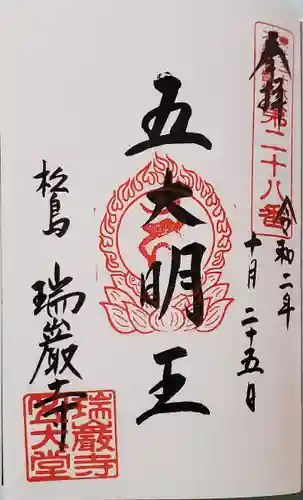 奉拝
第二十八番
令和二年
十月二十五日
五大明王
松島
瑞巖寺
瑞巖寺
五大堂